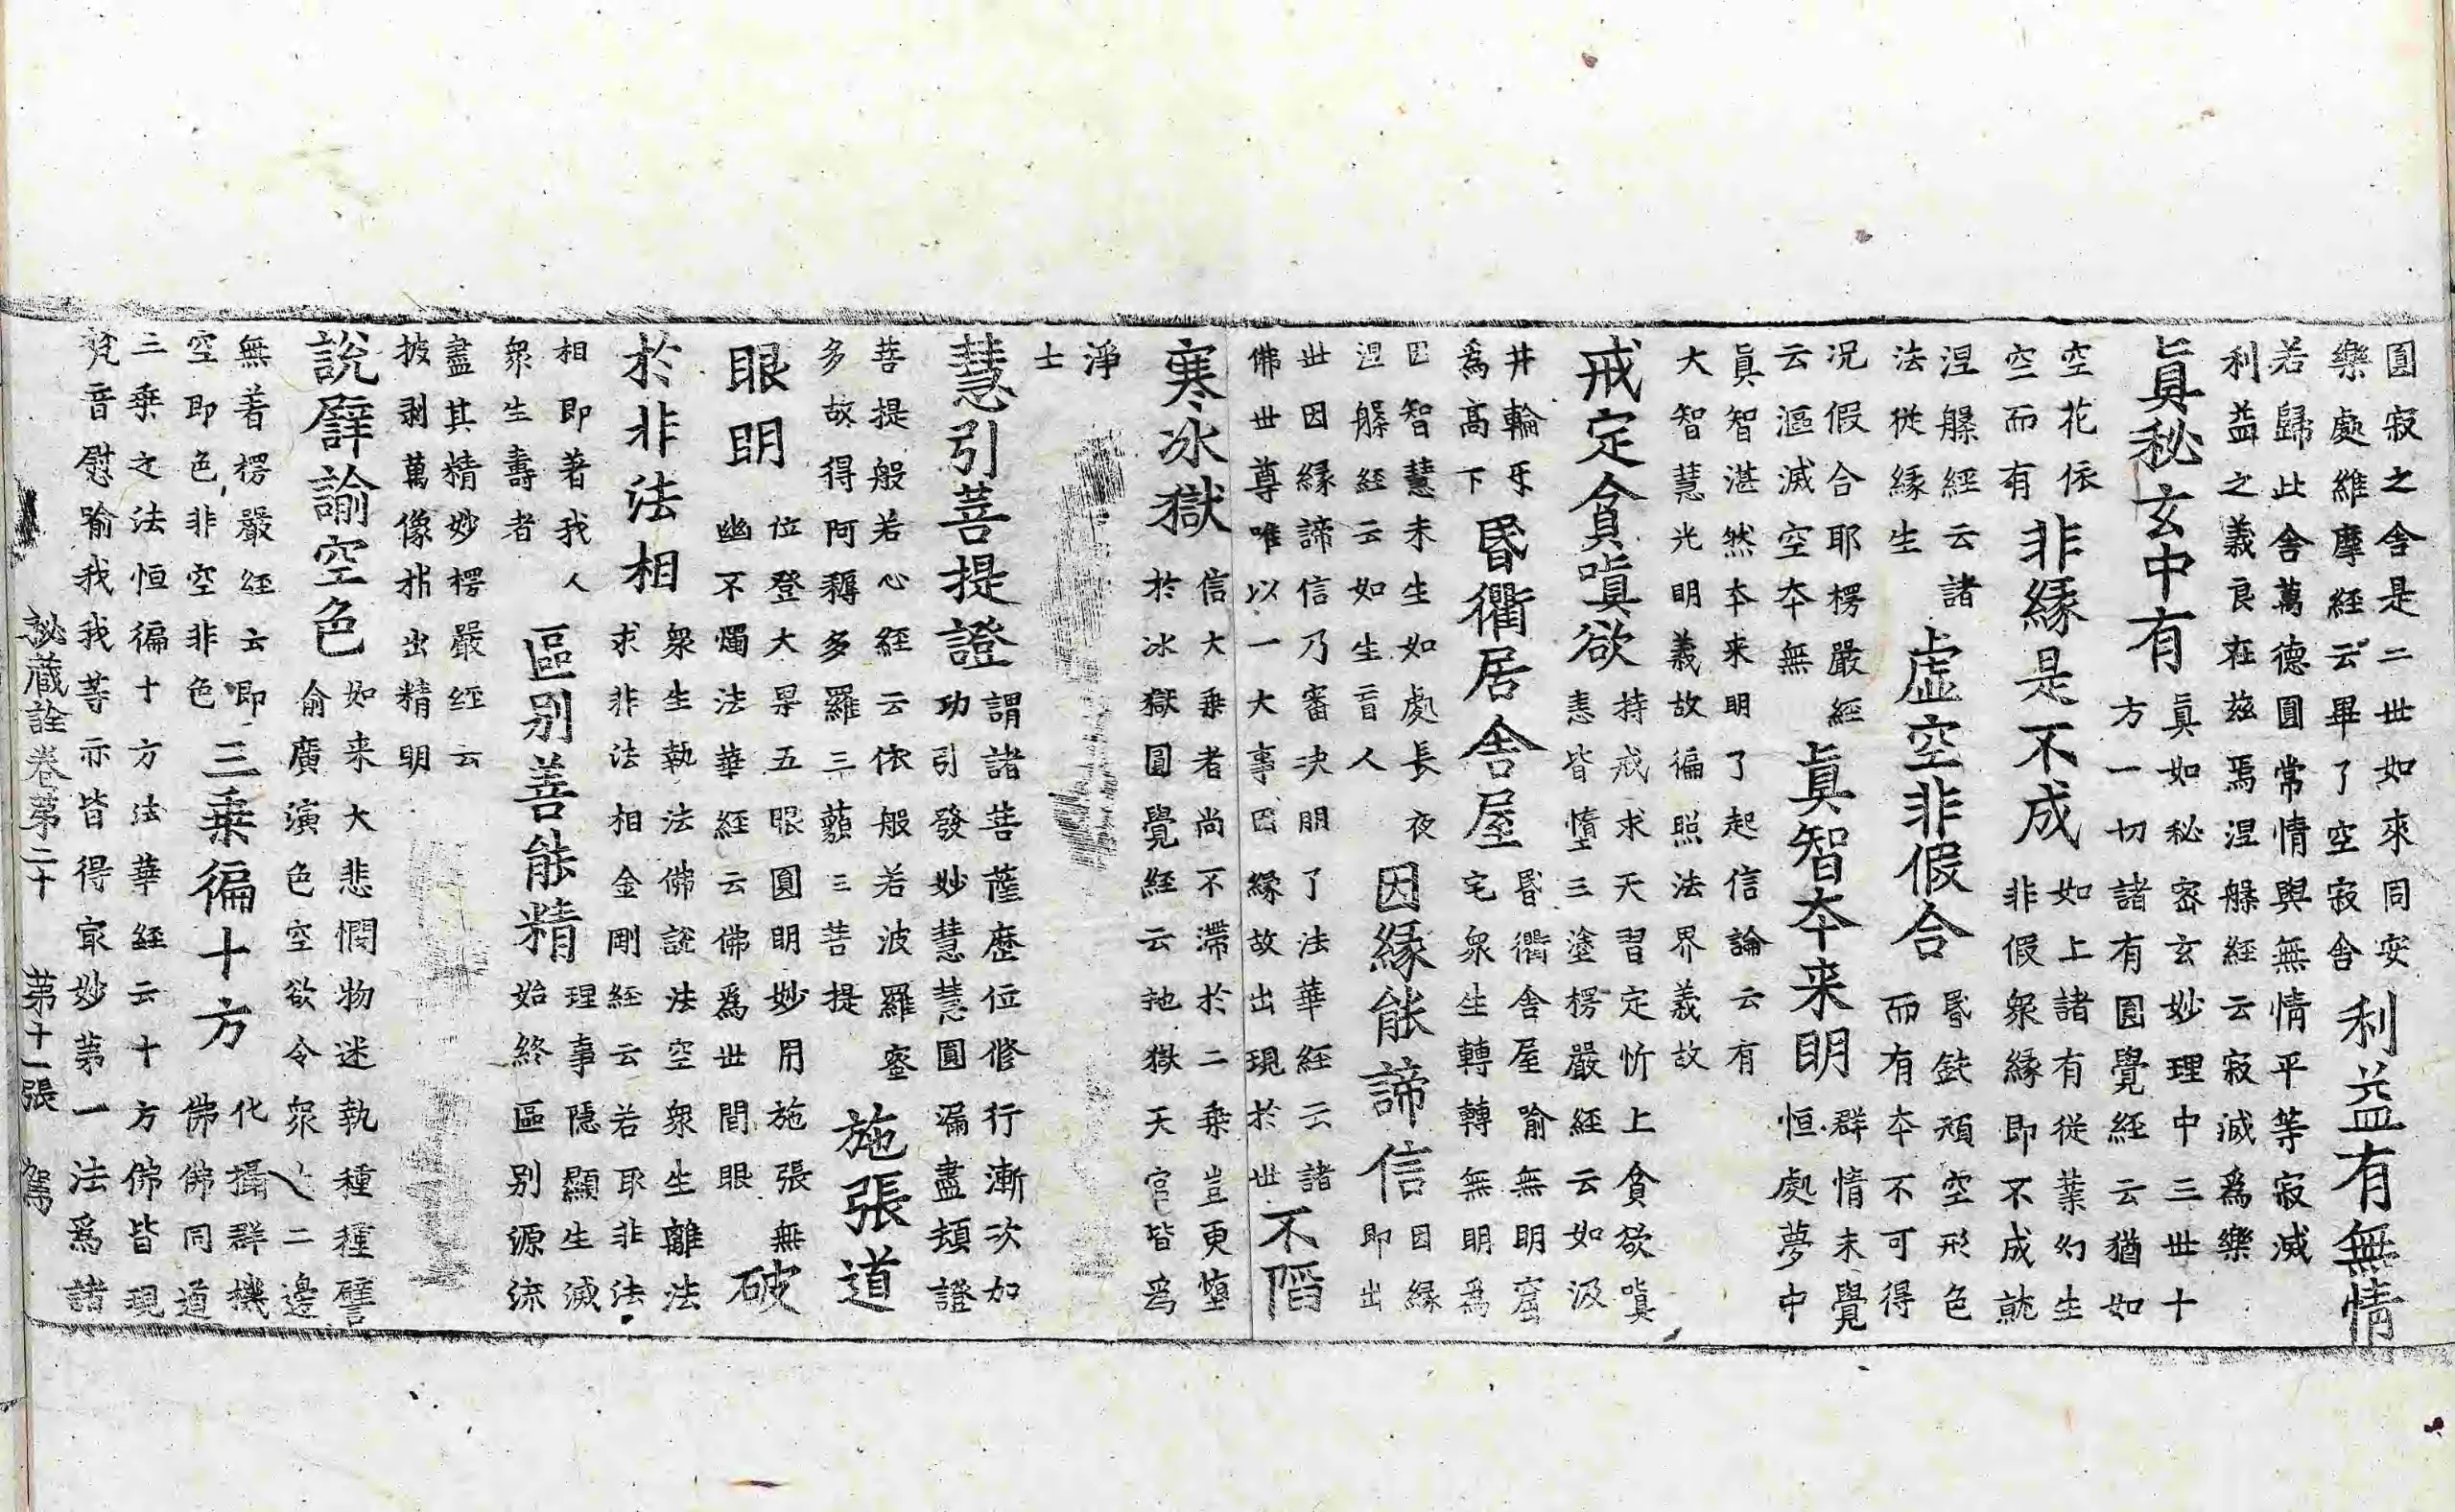 圓寂之舍是二世如來同安
樂處維摩經云畢了空寂舍
利益有無情
若歸此舍萬德圓常情與無情平等寂滅
利益之義良在兹焉涅槃經云寂滅爲樂
眞秘玄中有
眞如秘密玄妙理中三世十
方一切諸有圓覺經云猶如
空花依
空而有
非緣是不成
如上諸有從業幻生
非假衆緣即不成就
涅槃經云諸
法從緣生
虛空非假合
昬鈌頑空形色
而有本不可得
况假合耶楞嚴經
云漚滅空本無
眞智本来明
群情未覺
恒處夢中
眞智湛然本来明了起信論云有
大智慧光明義故徧照法界義故
戒定貪嗔欲
持戒求天習定忻上貪欲嗔
恚皆墮三塗楞嚴經云如汲
井輪牙
爲高下
昬衢居舍屋
昬衢舍屋喻無明窟
宅衆生轉轉無明爲
因智慧未生如處長夜
涅槃經云如生盲人
因緣能諦信
因緣
即出
世因緣諦信乃審决明了法華經云諸
佛世尊唯以一大事因緣故出現於世
不陷
寒冰獄
信大乗者尚不滯於二乗豈更墮
於冰獄圓覺經云地獄天宫皆爲
淨
士
慧引菩提證
謂諸菩薩歷位修行漸次加
功引發妙慧慧圓漏盡頬證
菩提般若心經云依般若波羅蜜
多故得阿耨多羅三藐三菩提
施張道
眼明
位登大旱五眼圓明妙用施張無
幽不燭法華經云佛爲世間眼
破
於非法相
衆生執法佛說法空衆生離法
求非法相金剛經云若取非法
相即著我人
衆生壽者
區別善能精
理事隱顯生滅
始終區别源流
盡其精妙楞嚴經云
披剥萬像析出精明
說譬諭空色
如来大悲憫物迷執種種譬
俞廣演色空欲令衆　二邊
無著楞嚴經云即
空即色非空非色
三乗徧十方
化攝群機
佛佛同道
三乗之法恒徧十方法華經云十方佛皆現
梵音慰喻我我等亦皆得㝡妙第一法爲諸
秘藏詮卷第二十　第十一張　駕